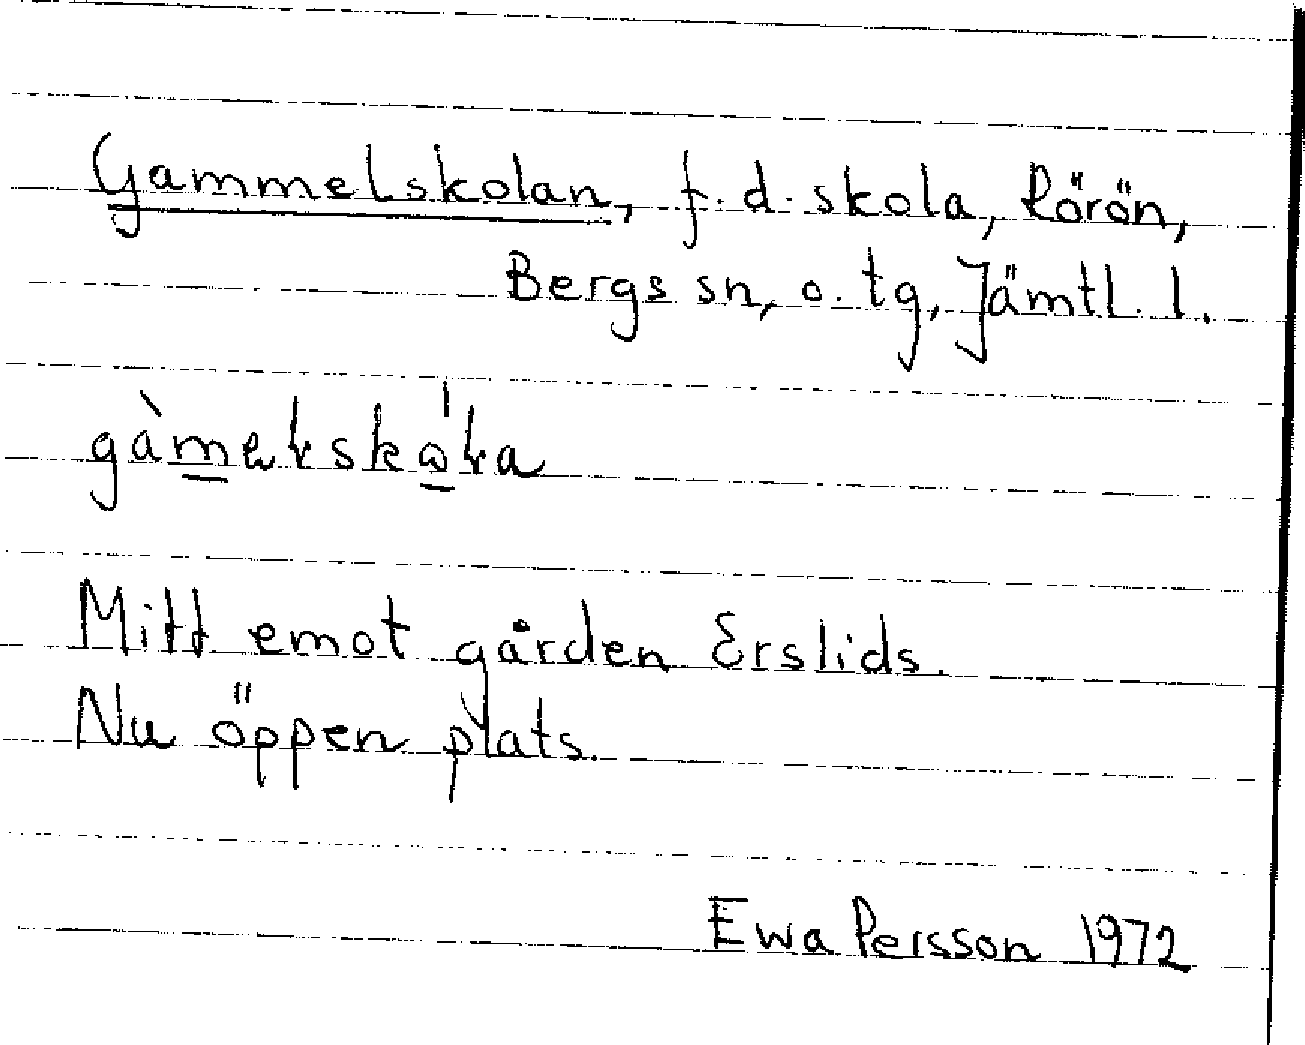 Gammelskolan, f.d. skola, Rörön,
Bergs sn, o. tg, Jämtl. l.
Mitt emot gården Erslids.
Nu öppen plats.
Ewa Persson 1972